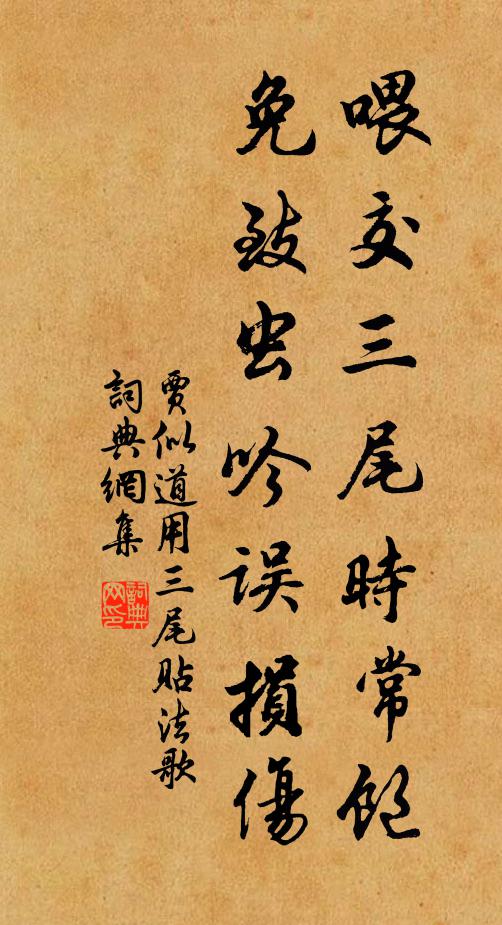 喂交三尾時常飽
免致虫吟误損傷
賈似道用三尾貼法歌
詞典網集
詞典網印